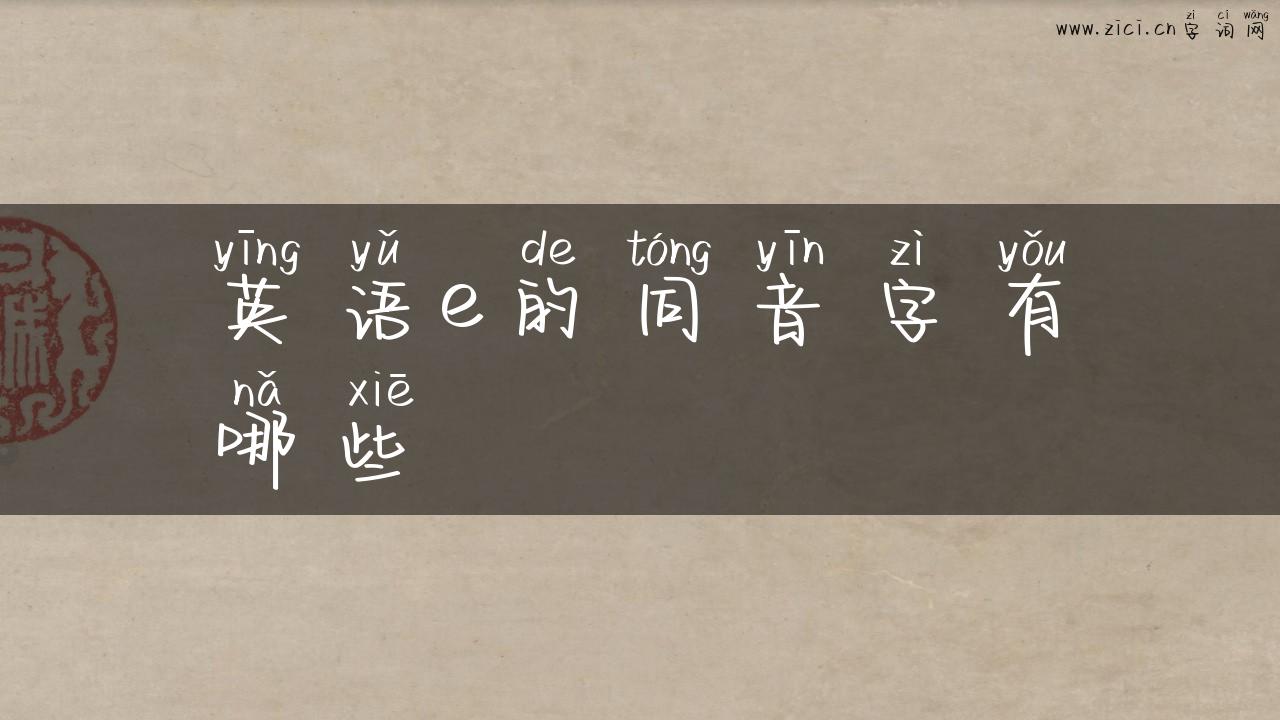 zì cí wǎng
www.zici.cn字词网
yīng yǔ de tóng yīn zì yǒu
英语e的同音字有
nǎ xiē
哪些